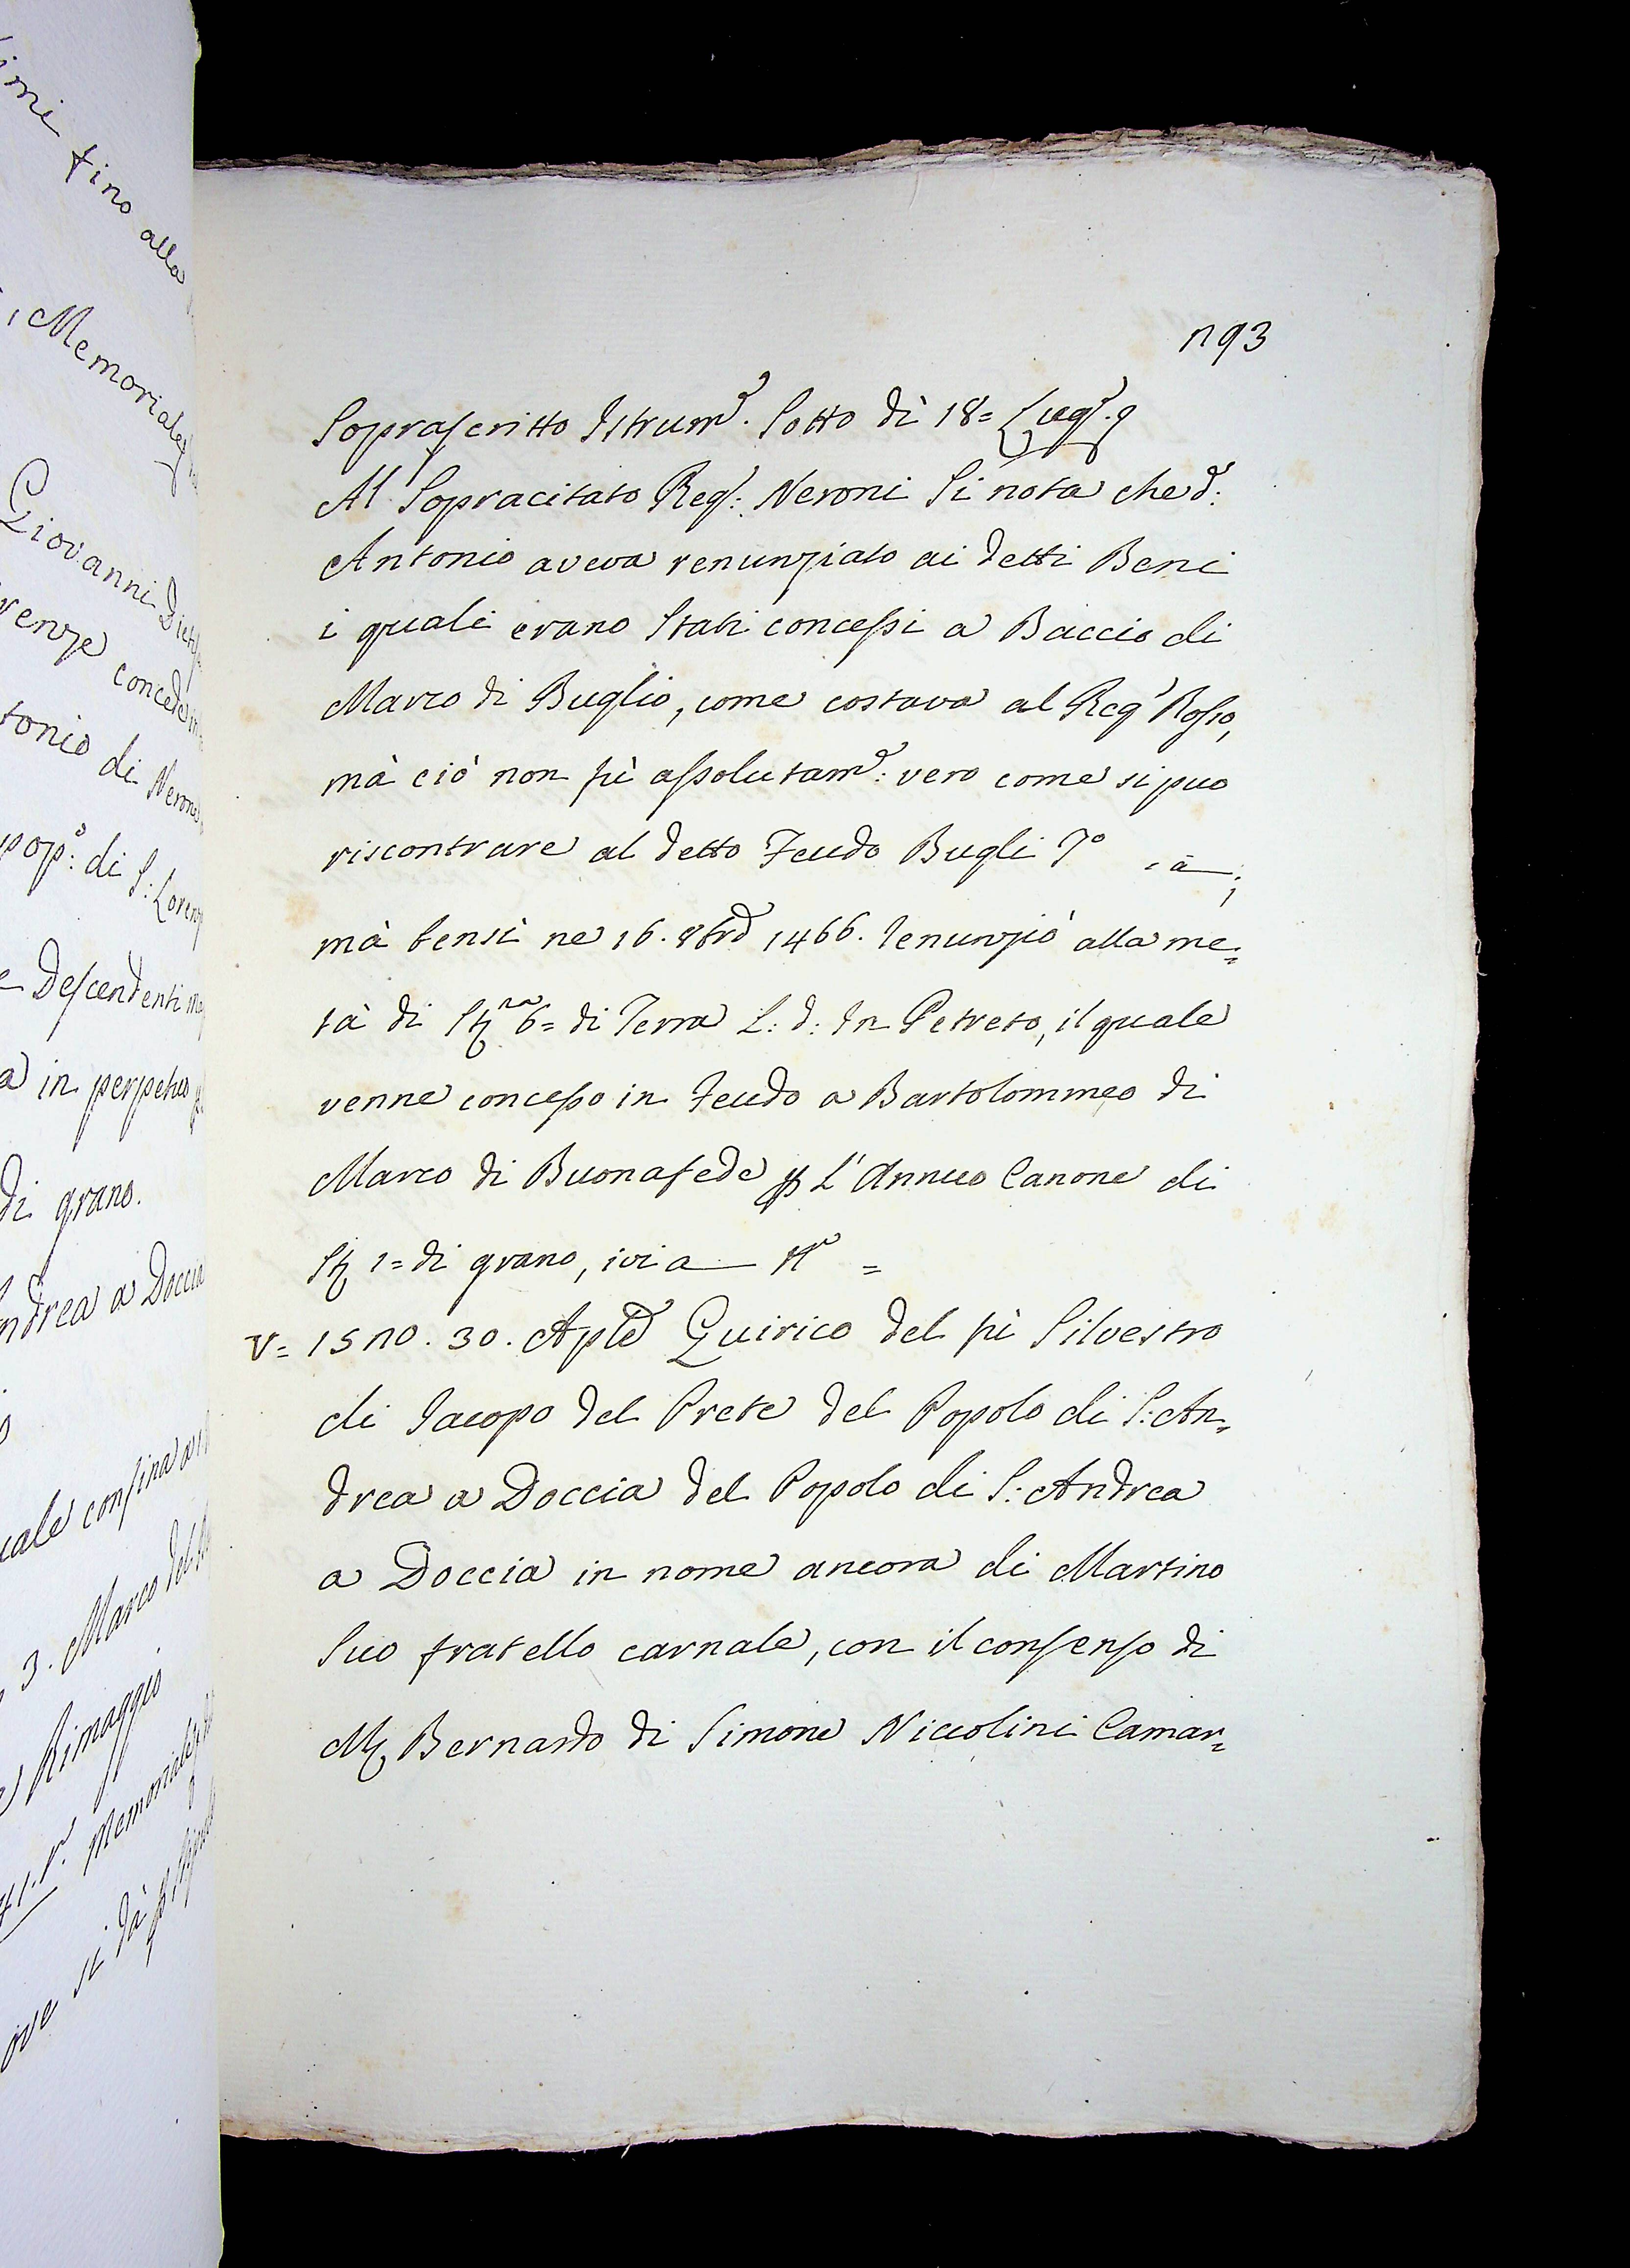 imi fino alla
Memoriale
Giovanni
renze conced
tonio di Nerone
pop: di S: Loren
e Descendenti
a in perpetuo
di grano.
ndrea a Doccia
uale confina a
3. Marco del
Rimaggio
Memoriale
ove si dà
n93
Soprascritto Istrum.e Sotto dì 18= Lug.o
Al Sopracitato Reg.o: Neroni Si nota che d:
Antonio aveva renunziato ai detti Beni
i quali erano Stati concessi a Baccio di
Marco di Buglio, come costava al Reg.o Rosso,
mà ciò non fù assolutam.e: vero come si puo
riscontrare al detto Feudo Bugli I.o a ;
mà bensì ne 16. 8bre 1466. renunziò alla me=
tà di St.ra 6= di Terra L: d: In Petreto, il quale
venne concesso in Feudo a Bartolommeo di
Marco di Buonafede p L' Annuo Canone di
St 1= di grano, ivi a =
V= 15n0. 30. Aple Quirico del fù Silvestro
di Iacopo del Prete del Popolo di S: An=
drea a Doccia del Popolo di S: Andrea
a Doccia in nome ancora di Martino
Suo fratello carnale, con il consenso di
M. Bernardo di Simone Niccolini Camar=